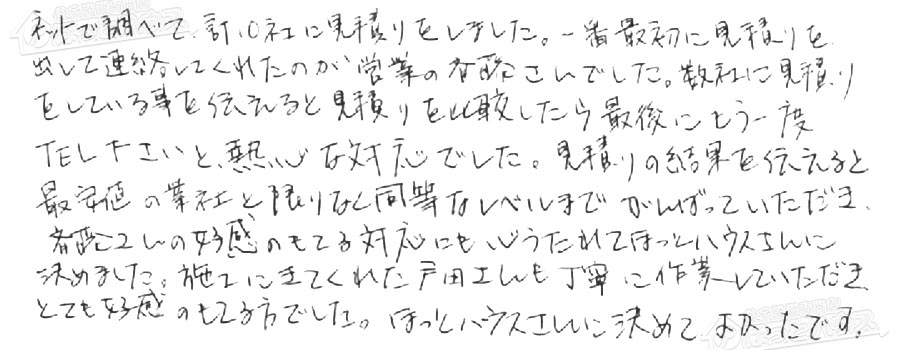 ネットで調べて、計10社に見積りをしました。一番最初に見積りを
出して連絡してくれたのが営業の者部さんでした。数社に見積り
をしている事を伝えると見積りを比較したら最後にもう一度
TEL下さいと、熱心な対応でした。見積りの結果を伝えると
最安値の業社と限りなく同等なレベルまでがんばっていただき、
さんの好感のもてる対応にも心うたれてほっとハウスさんに
決めました。施工にきてくれた戸田さんも丁寧に作業していただき
とても好感のもてる方でした。ほっとハウスさんに決めてよかったです。